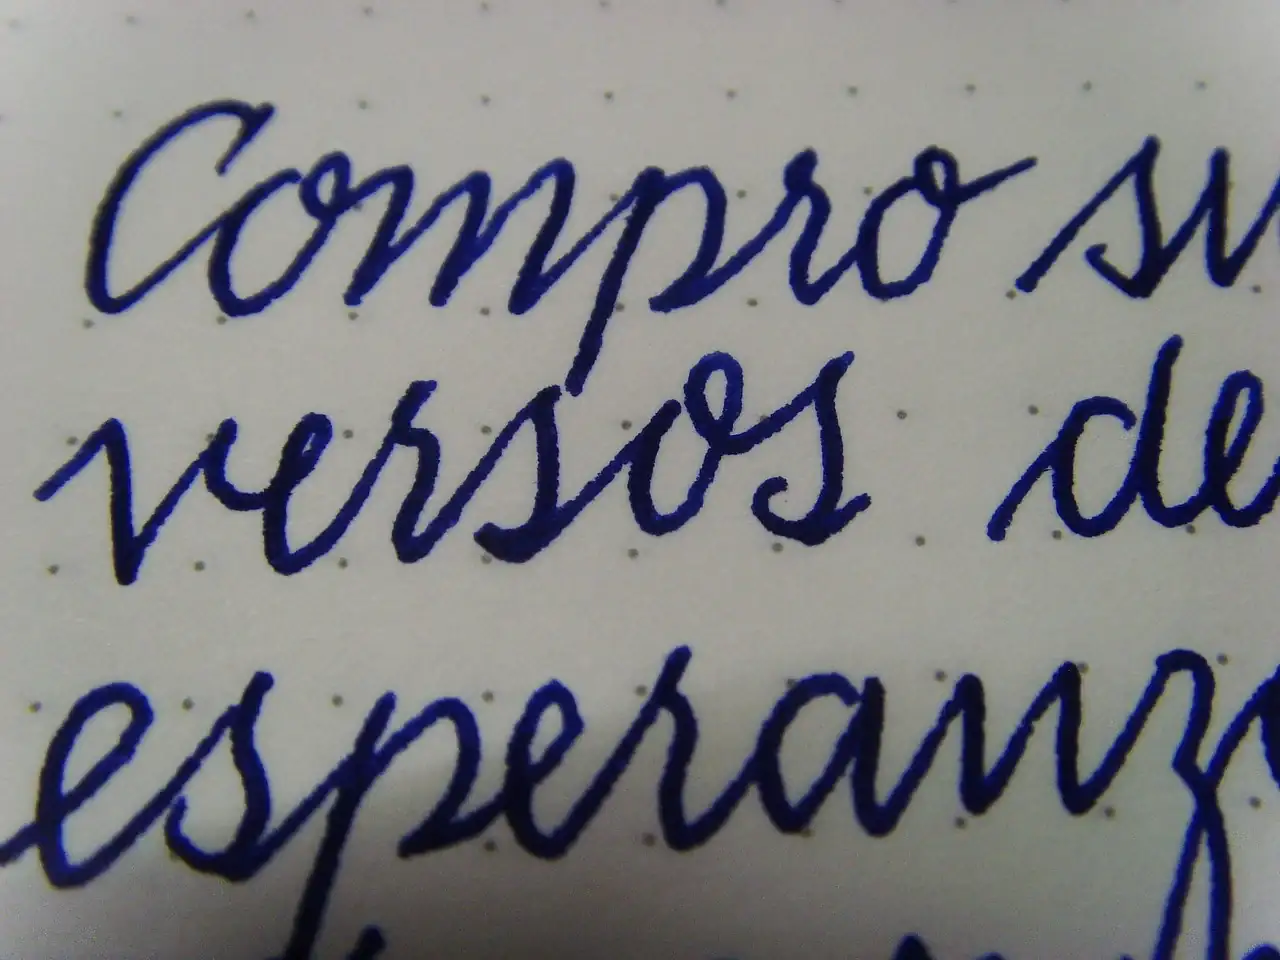 Compro su
versos de
esperanza